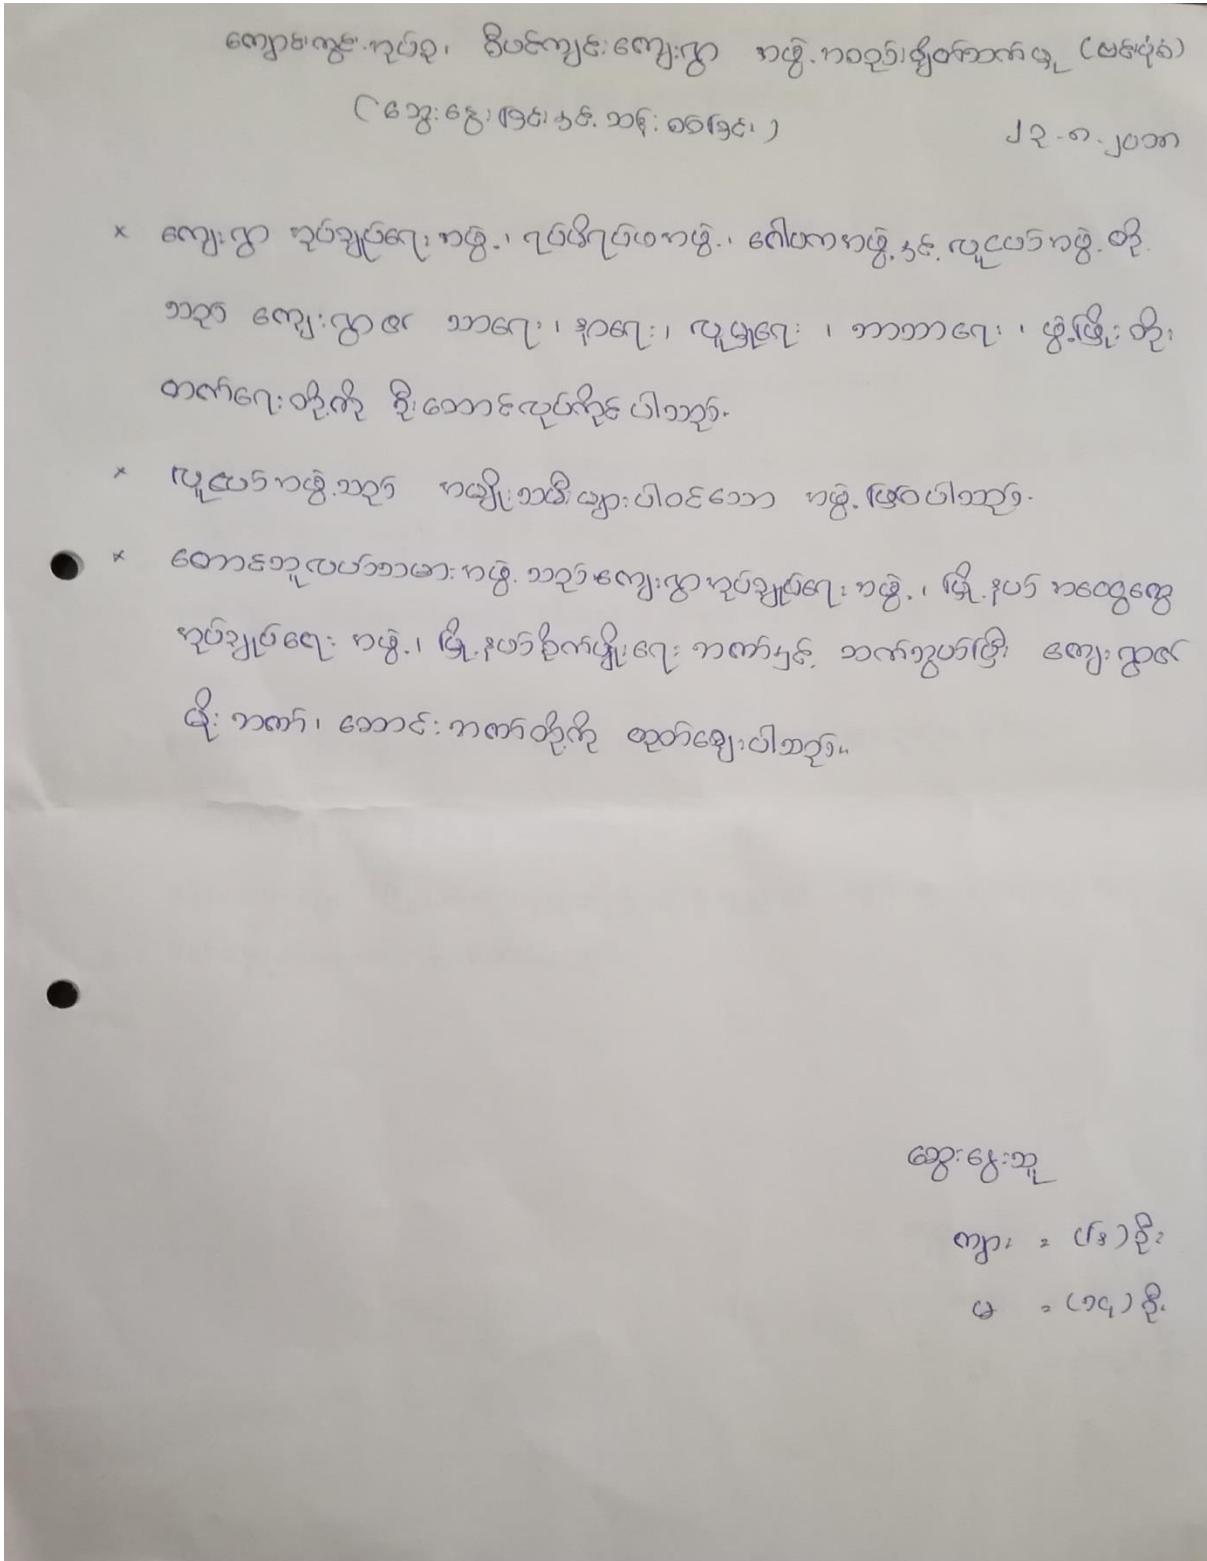 ကျောင်းကွင်းအုပ်စု၊ စီပင်ကျင်းကျေးရွာ အဖွဲ့အစည်းချိတ်ဆက်မှု (ဗင်းပုံစံ)
(ဆွေးနွေးခြင်းနှင့် ဆန်းစစ်ခြင်း)
၂၃-၈-၂၀၁၈
× ကျေးရွာ အုပ်ချုပ်ရေးအဖွဲ့၊ ရပ်မိရပ်ဖအဖွဲ့၊ ဂေါပကအဖွဲ့နှင့် လူငယ်အဖွဲ့တို့
သည် ကျေးရွာ၏ သာရေး၊ နာရေး၊ လူမှုရေး၊ ဘာသာရေး၊ ဖွံ့ဖြိုးတိုး
တက်ရေးတို့ကို ဦးဆောင်လုပ်ကိုင်ပါသည်။
× လူငယ်အဖွဲ့သည် အမျိုးသမီးများပါဝင်သော အဖွဲ့ဖြစ်ပါသည်။
× တောင်သူလယ်သမားအဖွဲ့သည် ကျေးရွာအုပ်ချုပ်ရေးအဖွဲ့၊ မြို့နယ် အထွေထွေ
အုပ်ချုပ်ရေးအဖွဲ့၊ မြို့နယ်စိုက်ပျိုးရေးဘဏ်နှင့် ဆက်သွယ်ပြီး ကျေးရွာ၏
မိုးဘဏ်၊ ဆောင်းဘဏ်တို့ကို ထုတ်ချေးပါသည်။
ဆွေးနွေးသူ
ကျား = (၆) ဦး
မ = (၁၄) ဦး